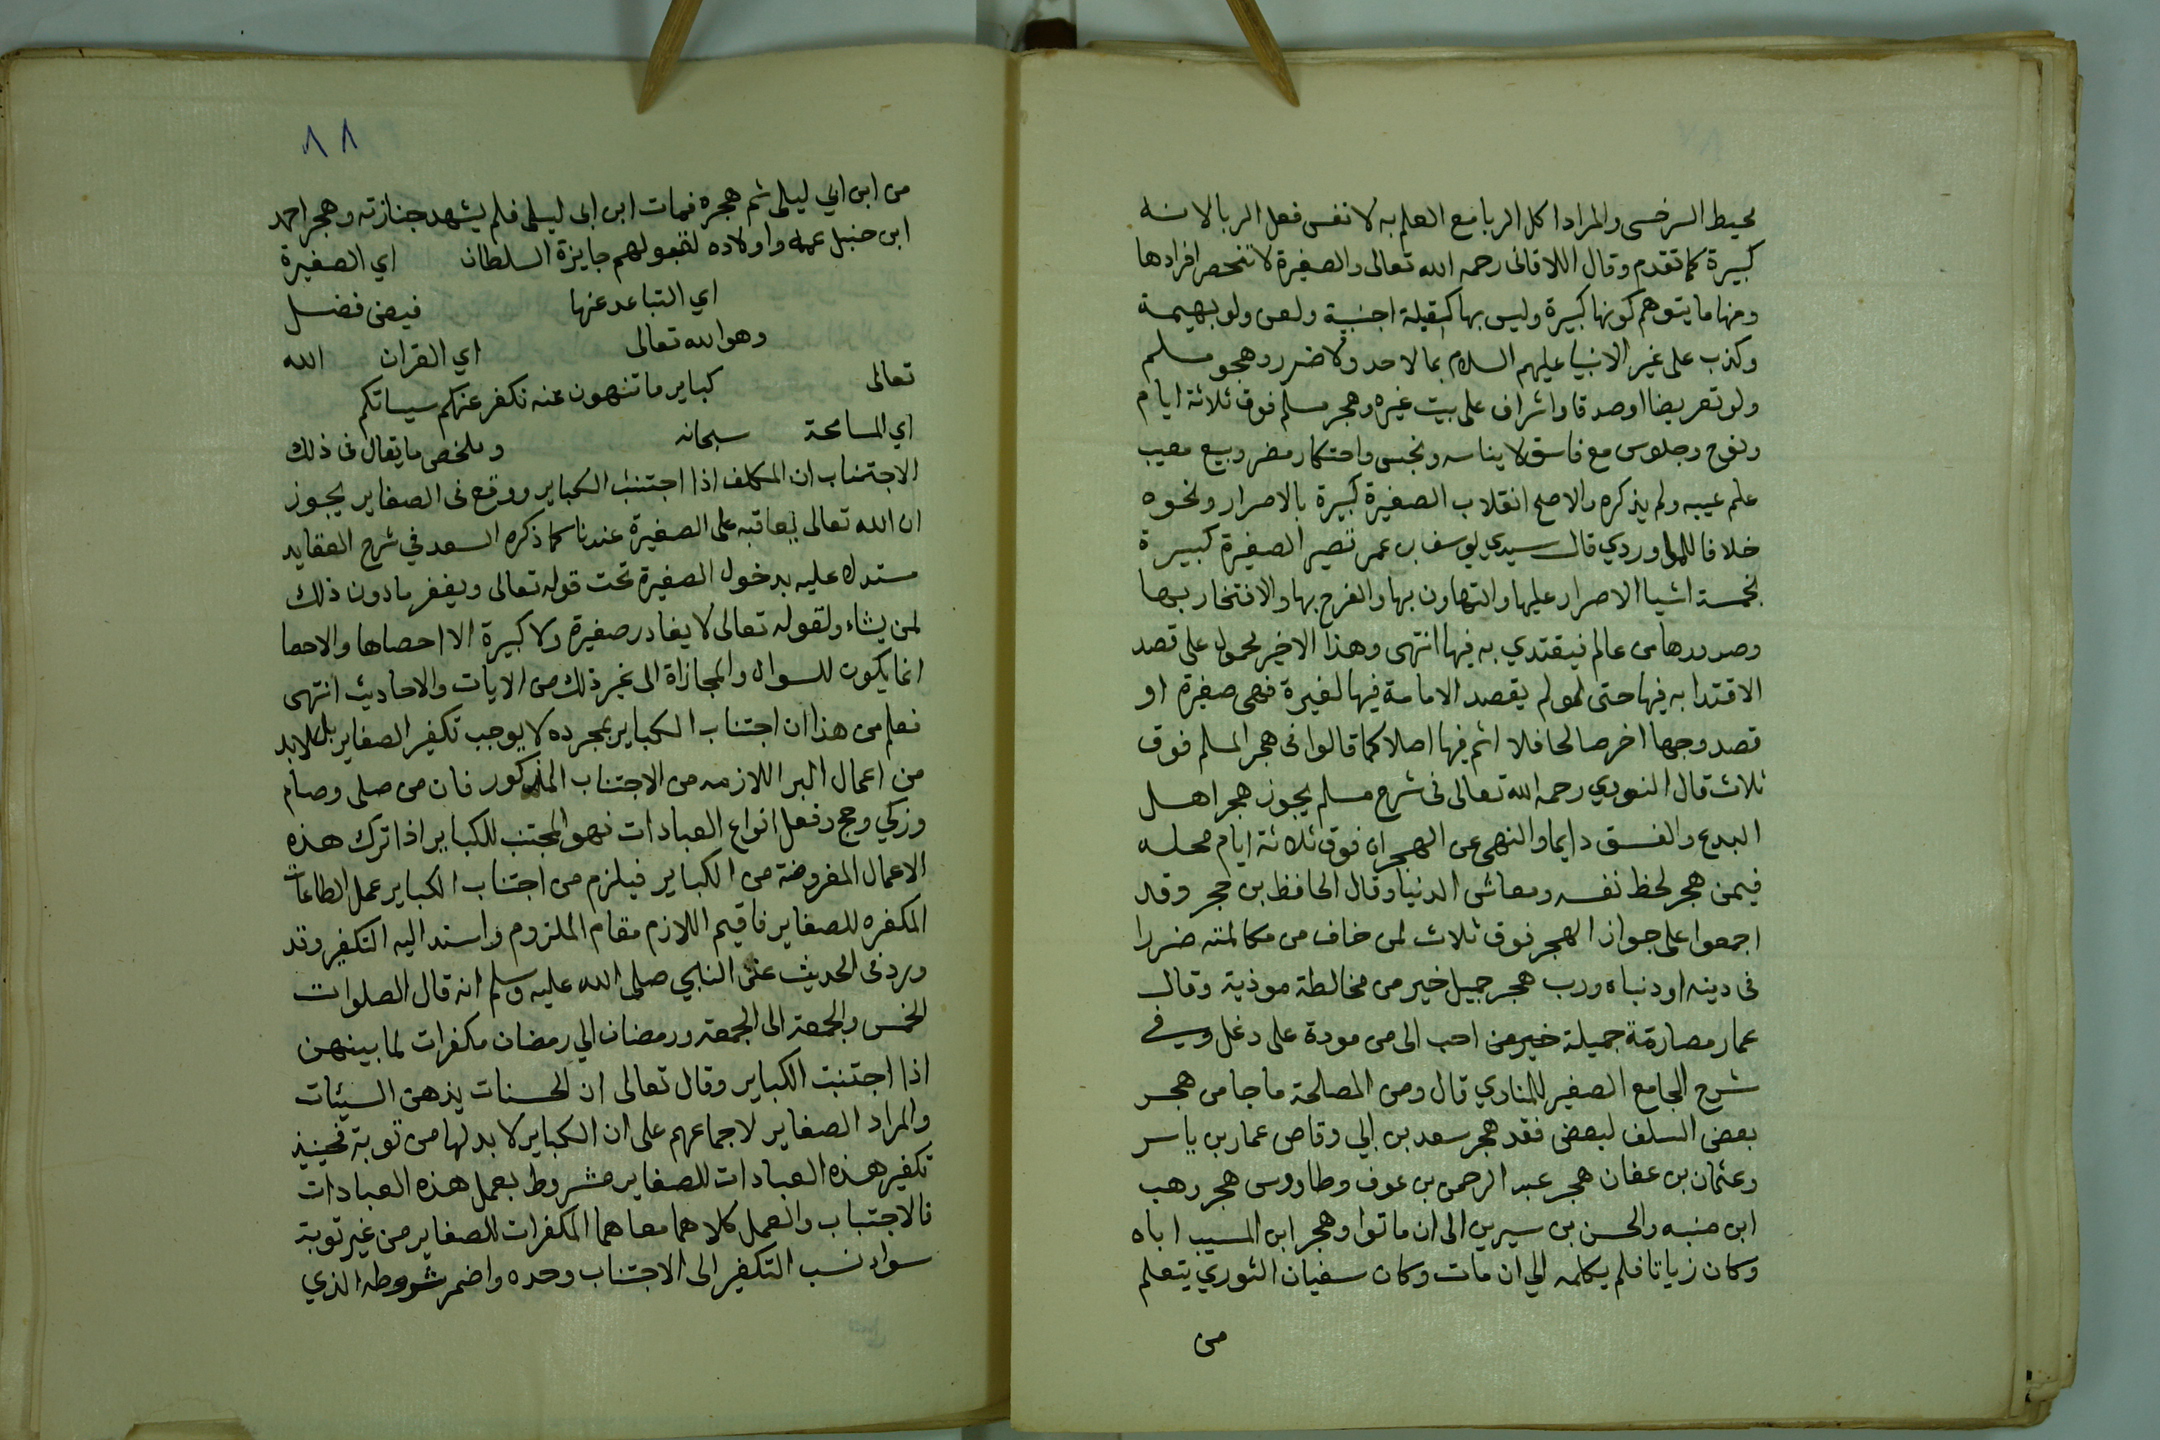 محيط السرخسى والمراد اكل الربا مع العلم به لا نفس فعل الربا لانه
كبيرة كما تقدم وقال اللاقانى رحمه الله تعالى والصغيرة لا تنحصر افرادها
ومنها ما يتوهم كونها كبيرة وليس بها كقبلة اجنبية ولعن ولو بهيمة
وكذب على غير الانبيا عليهم السلام بما لا حد ولا ضرر وهجو مسلم
ولو تعريضا او صدقا واشراف على بيت غيره وهجر مسلم فوق ثلاثة ايام
ونوح وجلوس مع فاسق لايناسه ونجس واحتكار مضر وبيع معيب
علم عيبه ولم يذكره والاصح انقلاب الصغيرة كبيرة بالاصرار ونحوه
خلافا للماوردي قال سيدي يوسف بن عمر تصير الصغيرة كبيرة
بخمسة اشيا الاصرار عليها والتهاون بها والفرح بها والافتخار بها
وصدورها من عالم فيقتدي به فيها انتهى وهذا الاخير محمول على قصد
الاقتدا به فيها حتى لو لم يقصد الامامة فيها لغيره فهى صغيرة او
قصد وجها اخر صالحا فلا اثم فيها اصلا كما قالوا فى هجر المسلم فوق
ثلاث قال النووي رحمه الله تعالى فى شرح مسلم يجوز هجر اهل
البدع والفسق دايما والنهى عن الهجران فوق ثلاثة ايام محله
فيمن هجر لحظ نفسه ومعاش الدنيا وقال الحافظ بن حجر وقد
اجمعوا على جواز الهجر فوق ثلاث لمن خاف من مكالمته ضررا
فى دينه او دنياه ورب هجر جميل خير من مخالطة موذية وقال
عمار مصارمة جميلة خير من احب الى من مودة على دغل وفي
شرح الجامع الصغير للمناوي قال ومن المصالحة ما جا من هجر
بعض السلف لبعض فقد هجر سعد بن ابي وقاص عمار بن ياسر
وعثمان بن عفان هجر عبد الرحمن بن عوف وطاووس هجر وهب
ابن منبه والحسن بن سيرين الى ان ماتوا وهجر ابن المسيب اباه
وكان زياتا فلم يكلمه الي ان مات وكان سفيان الثوري يتعلم
من
٨٨
من ابن ابي ليلى ثم هجره فمات ابن ابى ليلى فلم يشهد جنازته وهجر احمد
ابن حنبل عمه واولاده لقبولهم جايزة السلطان اي الصغيرة
اي التباعد عنها فيض فضل
وهو الله تعالى اي القران الله
تعالى كباير ما تنهون عنه نكفر عنكم سياتكم
اي المسامحة سبحانه وملخص ما يقال فى ذلك
الاجتناب ان المكلف اذا اجتنب الكباير ووقع فى الصغاير يجوز
ان الله تعالى يعاقبه على الصغيرة عندنا كما ذكره السعد في شرح العقايد
مستدلا عليه بدخول الصغيرة تحت قوله تعالى ويغفر ما دون ذلك
لمن يشاء ولقوله تعالى لا يغادر صغيرة ولا كبيرة الا احصاها والاحصا
انما يكون للسوال والمجازاة الى غير ذلك من الايات والاحاديث انتهى
فعلم من هذا ان اجتناب الكباير بمجرده لا يوجب تكفير الصغاير بل لا بد
من اعمال البر اللازمه من الاجتناب المذكور فان من صلى وصام
وزكي وحج وفعل انواع العبادات فهو المجتنب للكباير اذا ترك هذه
الاعمال المفروضة من الكباير فيلزم من اجتناب الكباير عمل الطاعات
المكفره للصغاير فاقيم اللازم مقام الملزوم واسند اليه التكفير وقد
ورد فى الحديث عن النبي صلى الله عليه وسلم انه قال الصلوات
الخمس والجمعة الى الجمعة ورمضان الي رمضان مكفرات لما بينهن
اذا اجتنبت الكباير وقال تعالى ان الحسنات يذهبن السيئات
والمراد الصغاير لاجماعهم على ان الكباير لا بد لها من توبة فحينيذ
تكفير هذه العبادات للصغاير مشروط بعمل هذه العبادات
فالاجتباب والعمل كلاهما معا هما المكفرات للصغاير من غير توبة
سوا ونسب التكفير الى الاجتناب وحده واضمر شروطه الذي